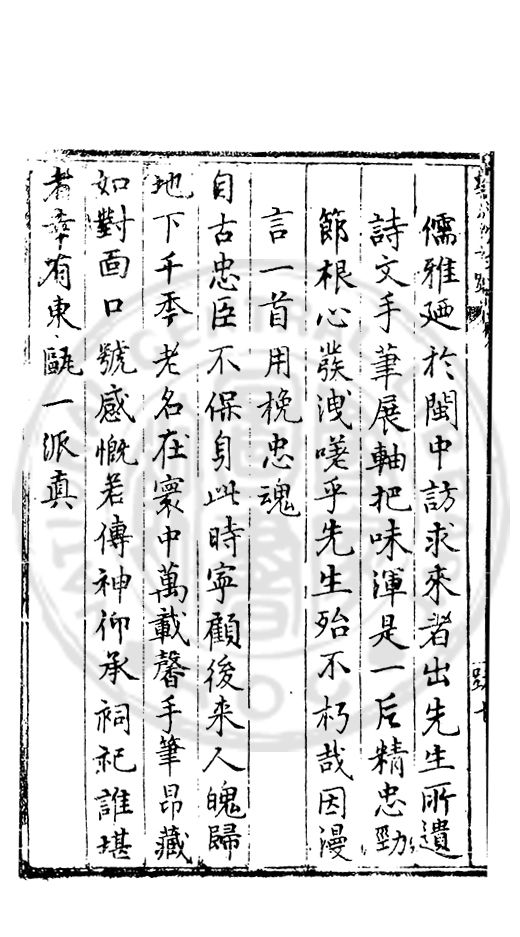 儒雅廼於閩中訪求來者出先生所遺
詩文手筆展軸把味渾是一后精忠勁
節根心發洩嗟乎先生殆不朽哉因漫
言一首用挽忠魂
自古忠臣不保身此時寧顧後来人魄歸
地下千季老名在寰中萬載馨手筆昂藏
如對面口號感慨若傳神仰承祠祀誰堪
者幸有東甌一派真